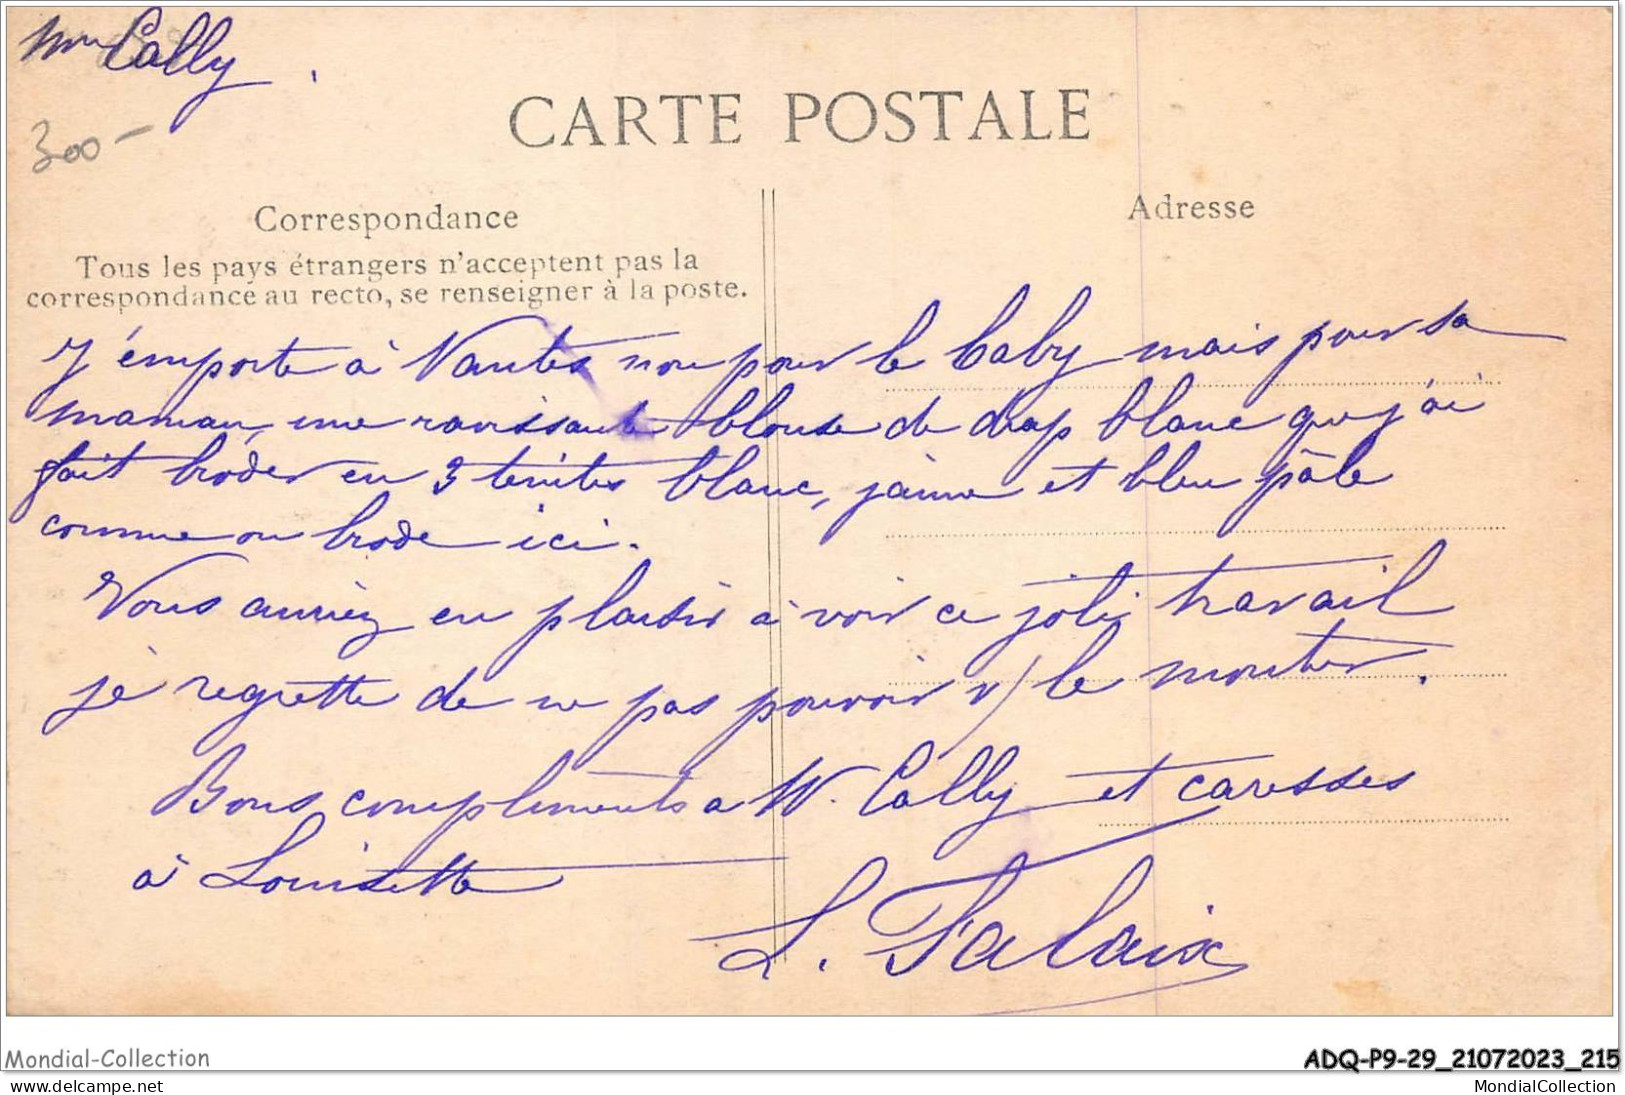 Mme Cally.
300 -
CARTE POSTALE
Correspondance
Adresse
Tous les pays étrangers n'acceptent pas la
correspondance au recto, se renseigner à la poste.
J'emporte à Nantes non pour le baby mais pour sa
maman, une ravissante blouse de drap blanc que j'ai
fait broder en 3 teintes blanc, jaune et bleu pâle
comme on brode ici.
Vous auriez eu plaisir à voir ce joli travail
je regrette de ne pas pouvoir v/ le montrer.
Bons compliments a M. Cally et caresses
à Louisette
L. Falaix
Mondial-Collection
ADQ-P9-29_21072023_215
www.delcampe.net
MondialCollection